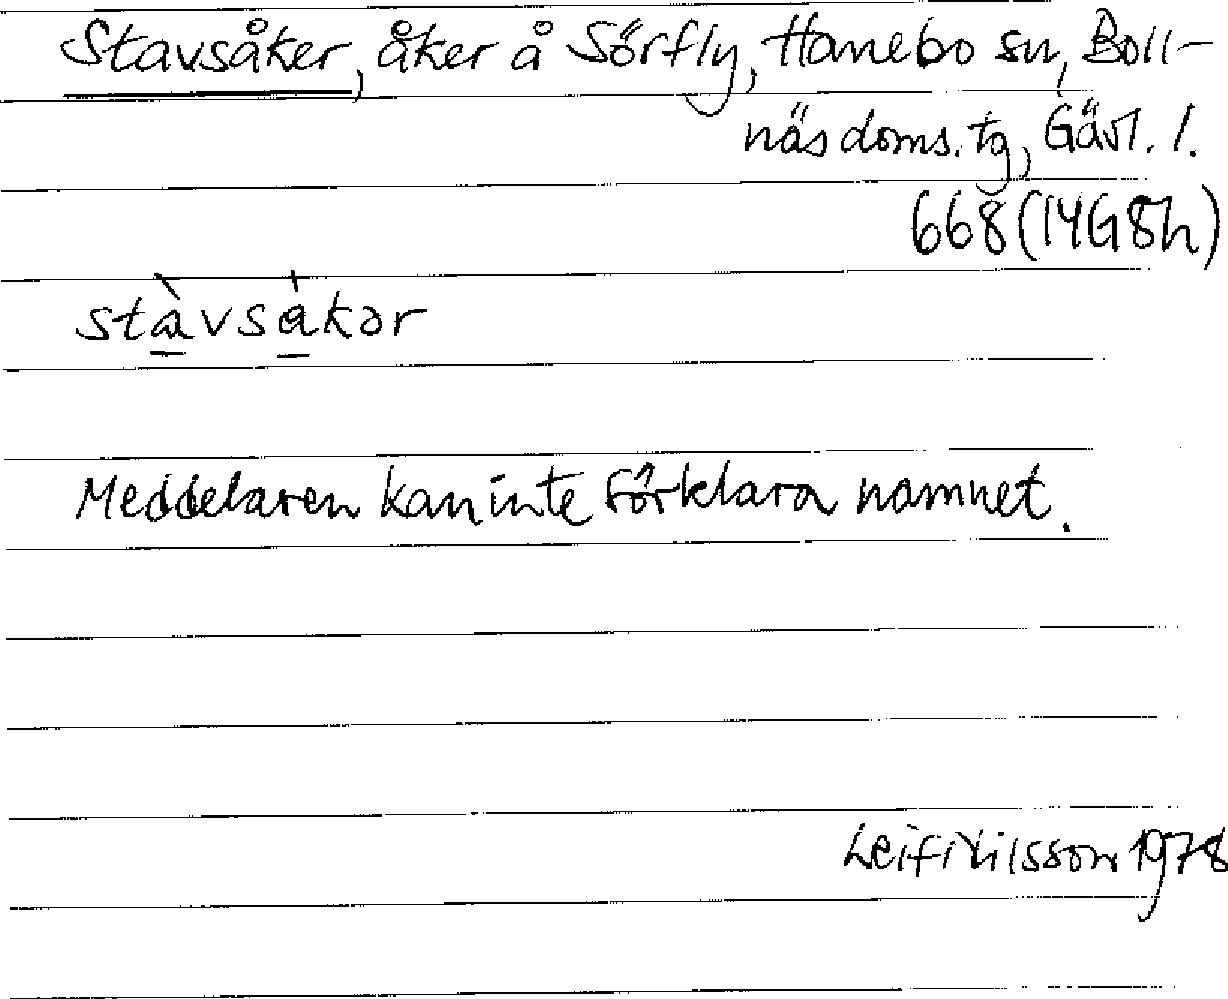 Stavsåker, åker å Sörfly, Hanebo sn, Boll-
näs doms. tg, Gävl. l.
668 (14G8h)
stàvsåkər
Meddelaren kan inte förklara namnet.
Leif Nilsson 1978